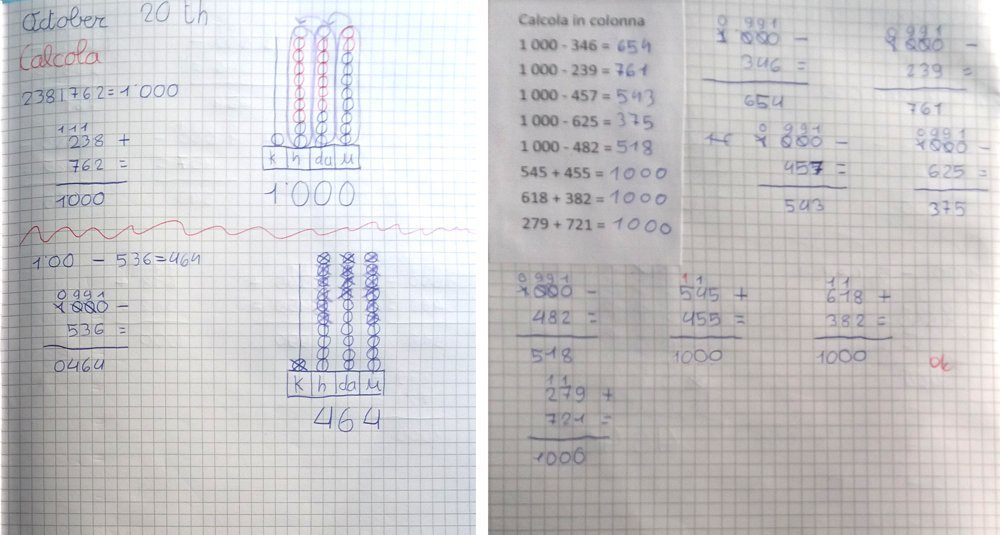 October 20 th
Calcola
238+762=1'000
111
238 +
762 =
1000
K h da u
1'000
1'00 - 536=464
0991
1000 -
536 =
0464
K h da u
464
Calcola in colonna
1 000 - 346 = 654
1 000 - 239 = 761
1 000 - 457 = 543
1 000 - 625 = 375
1 000 - 482 = 518
545 + 455 = 1000
618 + 382 = 1000
279 + 721 = 1000
0 991
1000 -
346 =
654
0991
1000 -
239 =
761
0 991
1000 -
457 =
543
0991
1000 -
625 =
375
0 991
1000 -
482 =
518
11
545 +
455 =
1000
11
618 +
382 =
1000
ok
11
279 +
721 =
1000